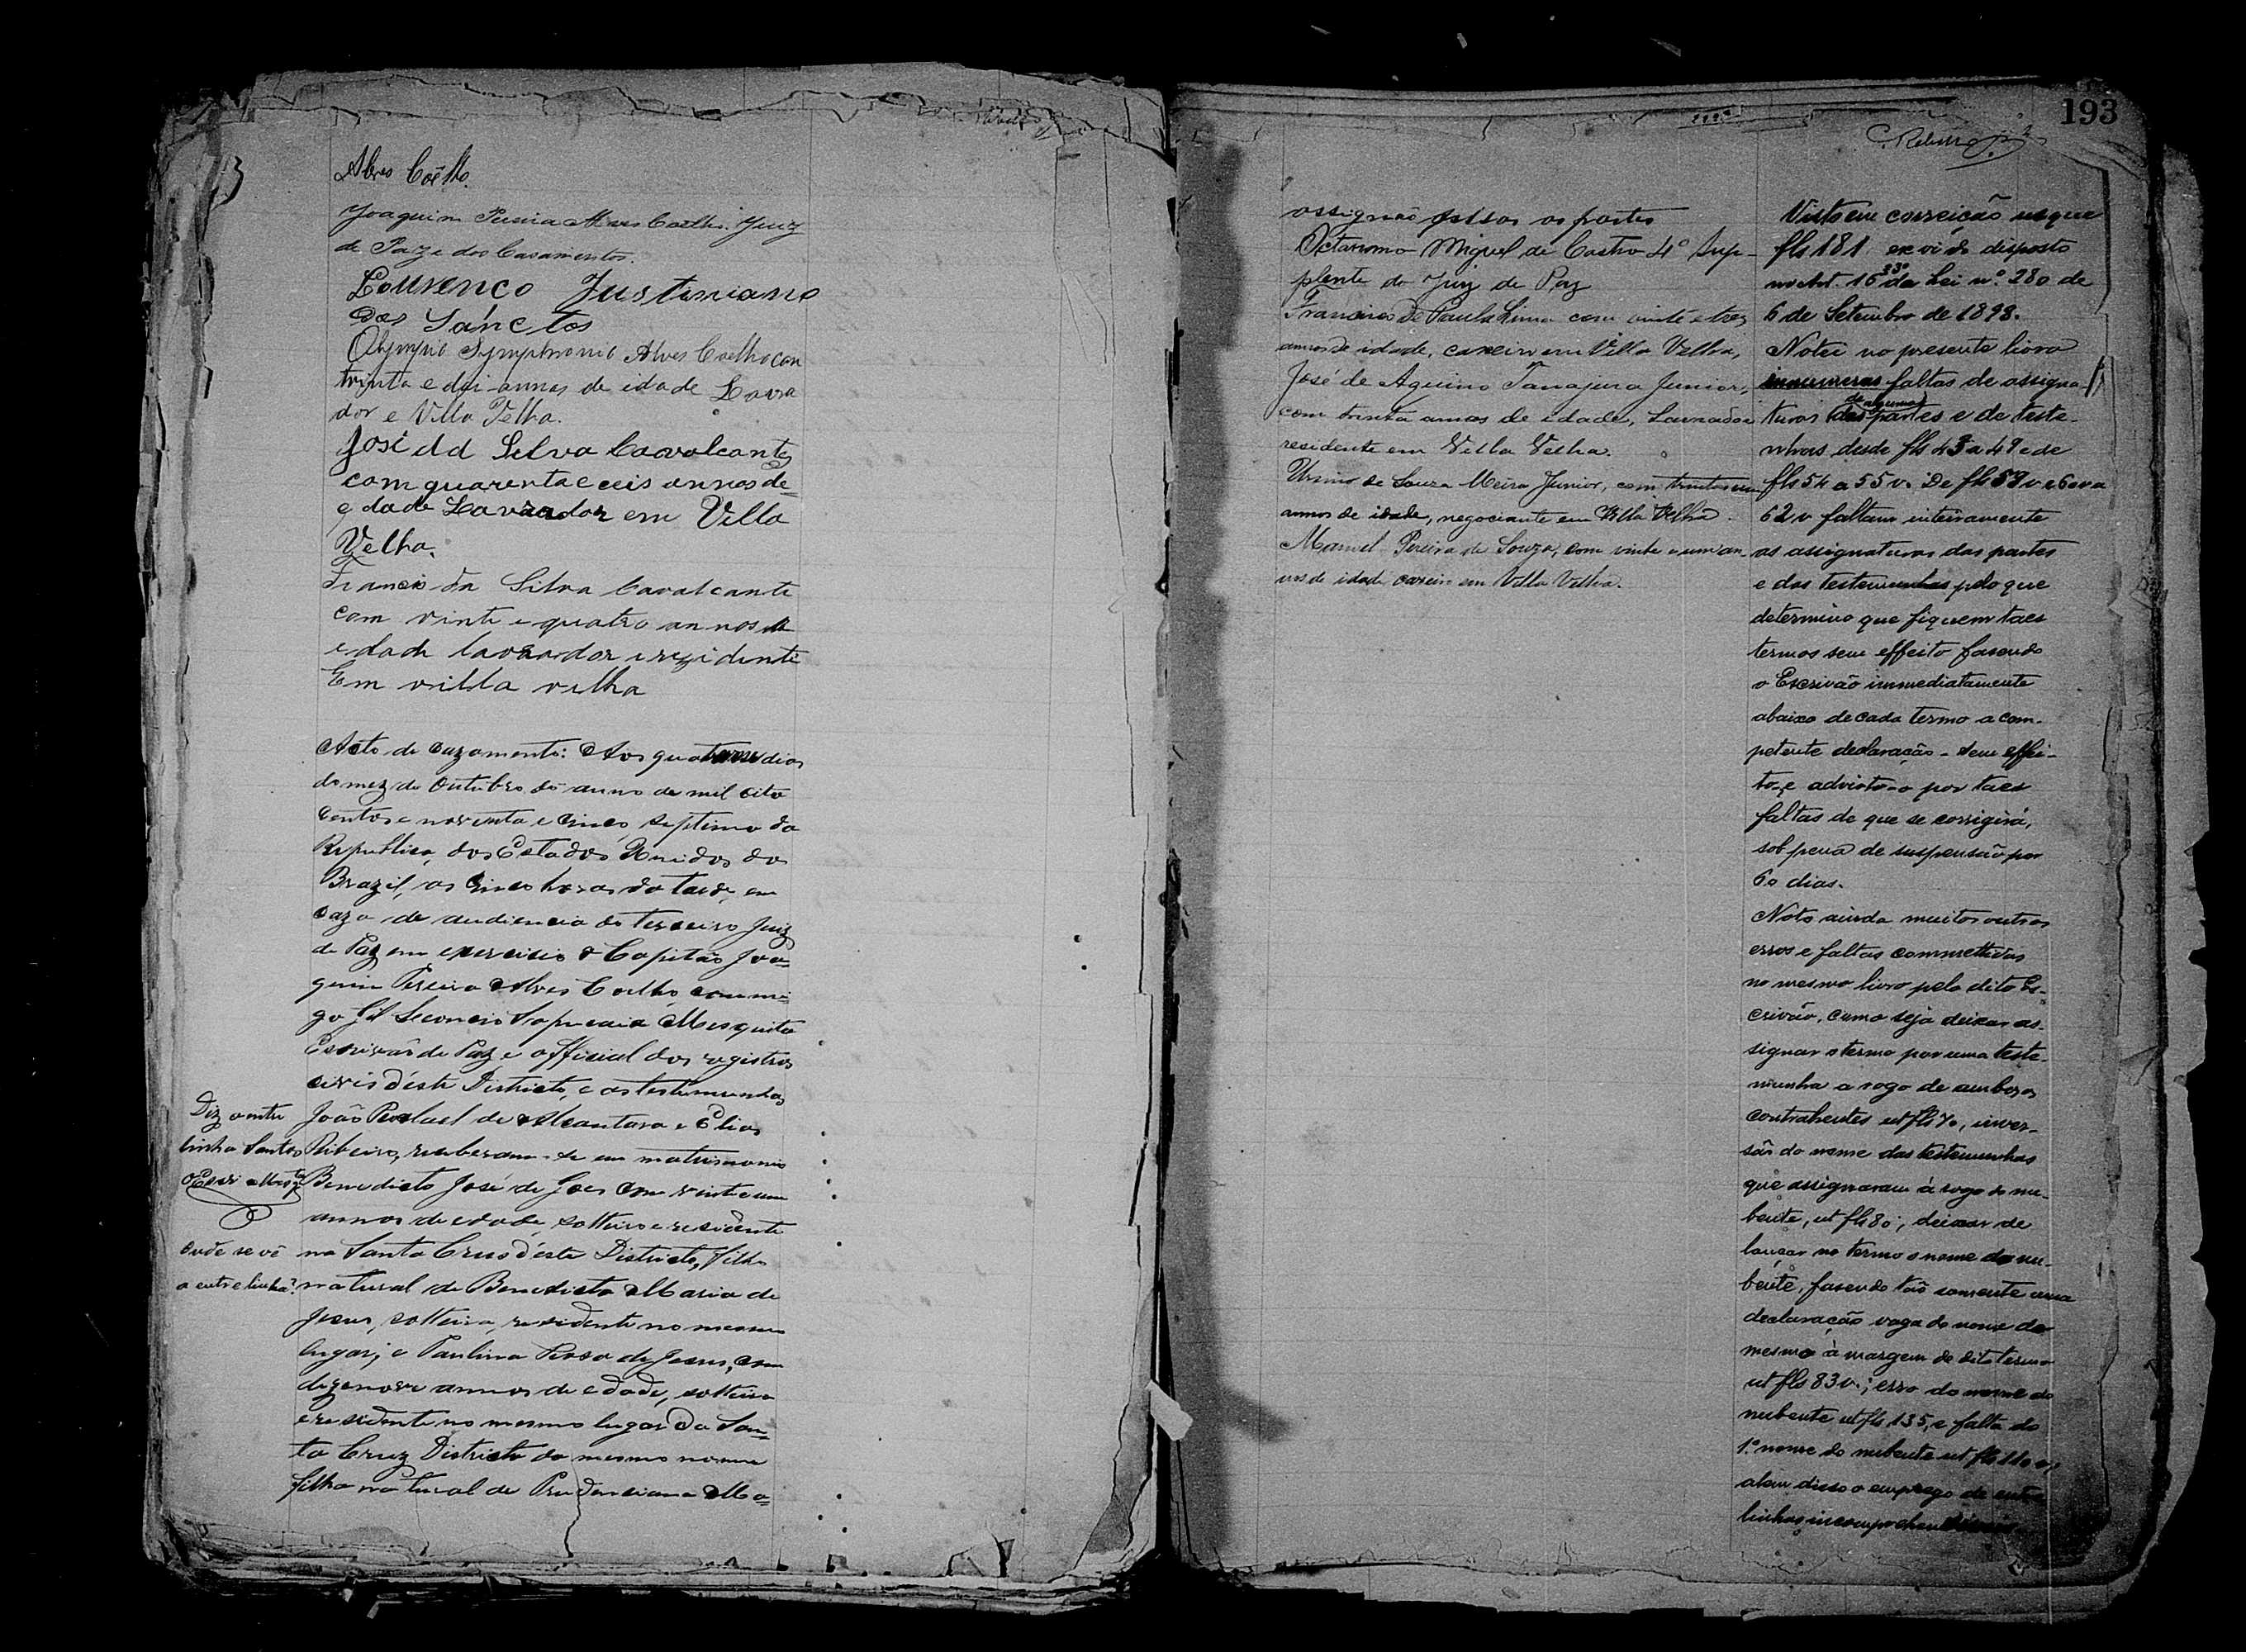 Alves Coêlho.
Joaquim Pereira Alves Coelho. Juiz
de Paz e dos Casamentos.
Lourenco Justiniano
dos Sánctos
Olympio Symphronio Alves Coelho con
trinta e doi annos de idade Lavra
dor e Villa Velha.
José dd Silva Cavalcante
com quarenta e ceis annos de
edade Lavrador em Villa
Velha.
Francis da Silva Cavalcante
com vinte e quatro annos de
edade lavrador e rezidente
Em villa velha
Acto de cazamento: Aos quatorze dias
do mez de Outubro do anno de mil oito
centos e noventa e cinco, septimo da
Republica dos Estados Unidos do
Brazil, as cinco horas da tarde, em
caza de audiencia do terceiro Juiz
de Paz em exercicio o Capitão Joa=
quim Pereira Alves Coelho, commi=
go Gil Leoncio Sapucaia Mesquita
Escrivão de Paz e official dos registros
civis déste Districto, e as testemunhas
João de Alcantara e Elias
Ribeiro, receberam-se em matrimonio
Benedicto José de Goes com vinte e um
annos de edade, solteiro e residente
na Santa Cruz déste Districto, filho
natural de Benedicta Maria de
Jesus, solteira, residente no mesmo
lugar; e Paulina Roza de Jesus, com
dezenove annos de edade, solteira
e residente no mesmo lugar da San=
ta Cruz Districto do mesmo nome
filha natural de Prudenciana Ma=
Diz a entre
linha Santos
O Escr. Mesqta
onde se vê
a entre linha?
193
assignão as partes
Octaviano Miguel de Castro 4º Sup-
plente do Juiz de Paz
Francisco de Paula Lima com vinte e tres
annos de idade, caxeiro em Villa Velha,
José de Aquino Tanajura Junior,
com trinta annos de idade, Lavrador
residente em Villa Velha.
Ursino de Souza Meira Junior, com trinta e um
annos de idade, negociante em Villa Velha.
Manuel Pereira de Souza, com vinte e um an
nos de idade, caxeiro em Villa Velha.
Visto em correição usque
fls 181 ex vi do disposto
no Art. 16 § 33º da Lei nº. 280 de
6 de Setembro de 1898.
Notei no presente livro
innumeras faltas de assigna-
turas de algumas das partes e de teste-
nhas desde fls 43 a 49 e de
fls 54 a 55 v. De fls 58 v e 60 v a
62 v faltam inteiramente
as assignaturas das partes
e das testemunhas pelo que
determino que fiquem taes
termos sem effeito fasendo
o Escrivão immediatamente
abaixo de cada termo a com-
petente declaração - Sem effei-
to - e advirto-o por taes
faltas de que se corrigirá,
sob pena de suspensão por
60 dias.
Noto ainda muitos outros
erros e faltas commettidas
no mesmo livro pelo dito Es-
crivão, como seja deixar as-
signar o termo por uma teste-
munha a rogo de ambos os
contrahentes ut fls 70, inver-
são do nome das testemunhas
que assignaram á rogo do nu-
bente, ut fls 80; deixar de
lançar no termo o nome do nu-
bente, fasendo tão somente uma
declaração vaga do nome do
mesmo á margem do dito termo
ut fls 83 v.; erro do nome do
nubente ut fls 135, e falta do
1º nome do nubente ut fls 110 v,
alem disso o emprego de entre
linhas incomprehensiveis